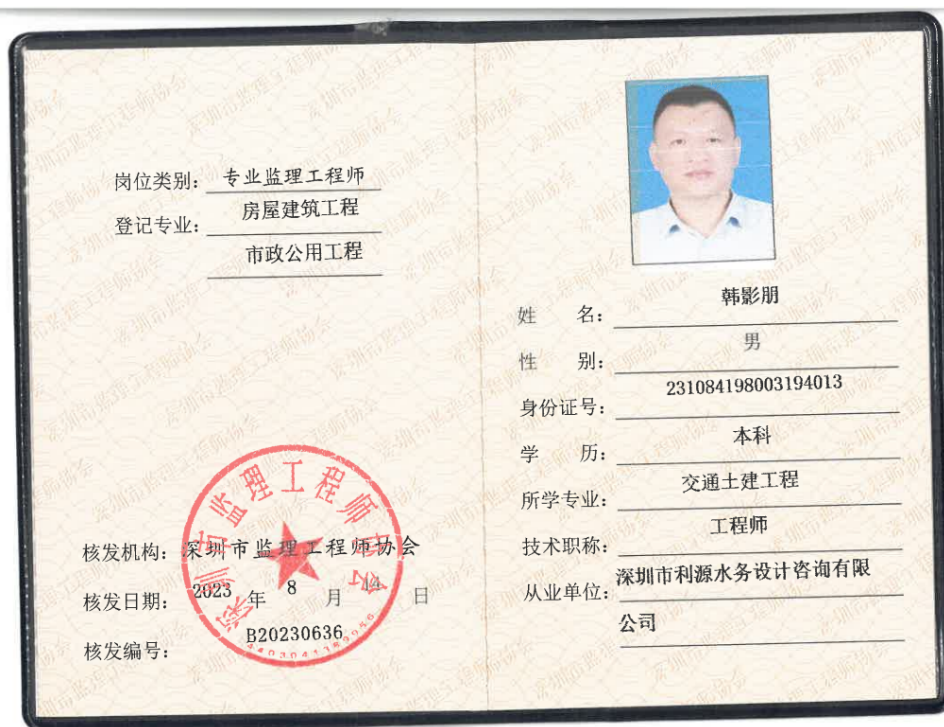 岗位类别： 专业监理工程师
登记专业： 房屋建筑工程
市政公用工程
核发机构：深圳市监理工程师协会
核发日期： 2023 年 8 月 14 日
核发编号： B20230636
深圳市监理工程师协会
姓 名： 韩影朋
性 别： 男
身份证号： 231084198003194013
学 历： 本科
所学专业： 交通土建工程
技术职称： 工程师
从业单位： 深圳市利源水务设计咨询有限
公司